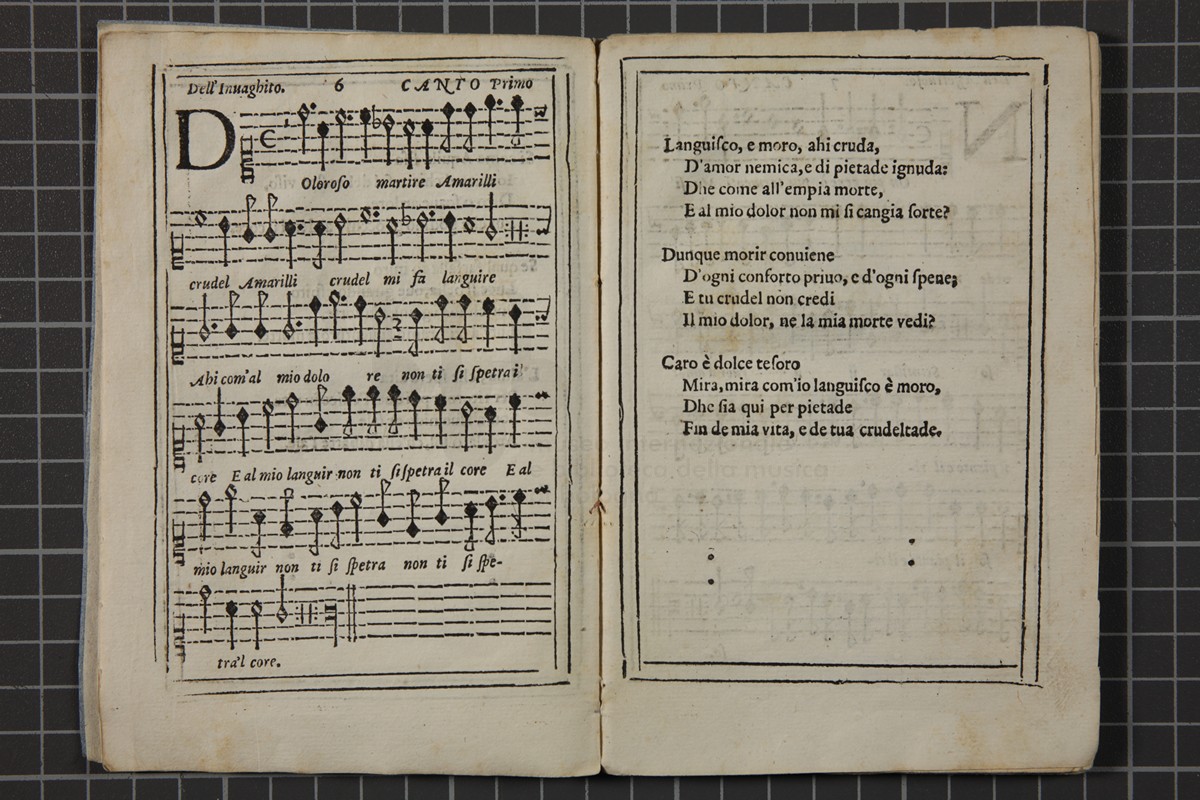 Dell'Inuaghito. 6 CANTO Primo
D
Oloroso martire Amarilli
crudel Amarilli crudel mi fa languire
Ahi com'al mio dolo re non ti si spetra il
core E al mio languir non ti si spetra il core E al
mio languir non ti si spetra non ti si spe-
tra'l core.
Languiſco, e moro, ahi cruda,
D'amor nemica, e di pietade ignuda:
Dhe come all'empia morte,
E al mio dolor non mi ſi cangia ſorte?
Dunque morir conuiene
D'ogni conforto priuo, e d'ogni ſpene;
E tu crudel non credi
Il mio dolor, ne la mia morte vedi?
Caro è dolce teſoro
Mira, mira com'io languiſco è moro,
Dhe ſia qui per pietade
Fin de mia vita, e de tua crudeltade.
della musica